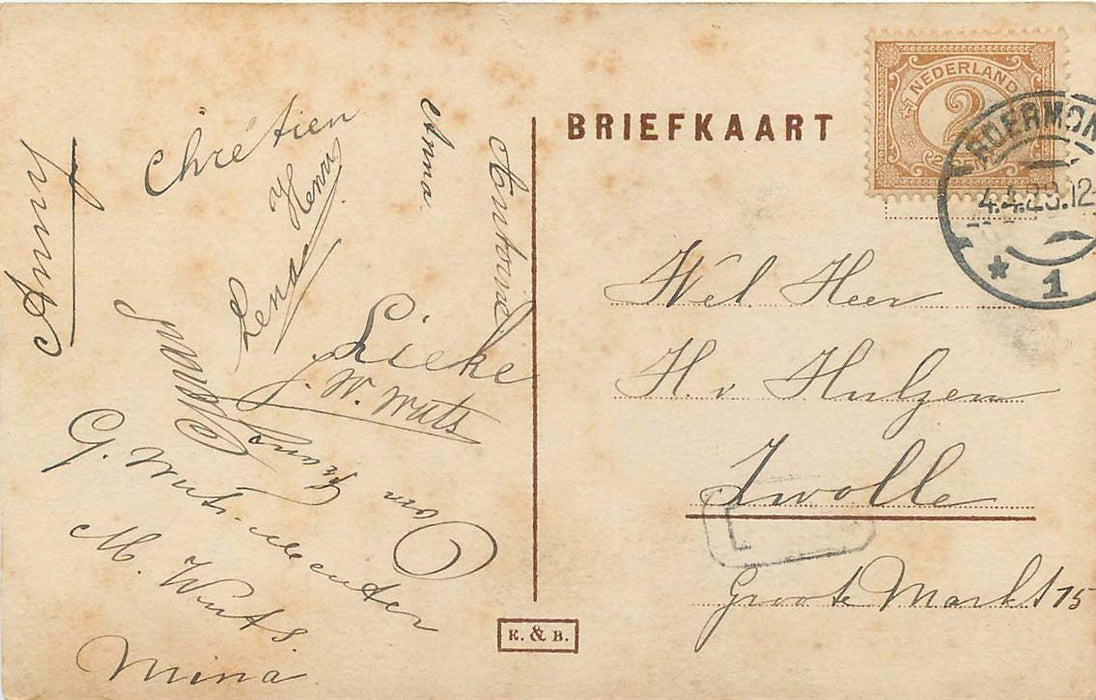 Anny
Chrétien
Henri
Lena
Anna.
Antoinet
Lieke
J. W. Wuts
Oom Frans
G. Wuts.
M. Wuts.
Mina
K. & B.
BRIEFKAART
NEDERLAND
2
CENT
ROERMON
4.4.23.12-
1
Wel. Heer
H. v Hulzen
Zwolle
Groote Markt 15